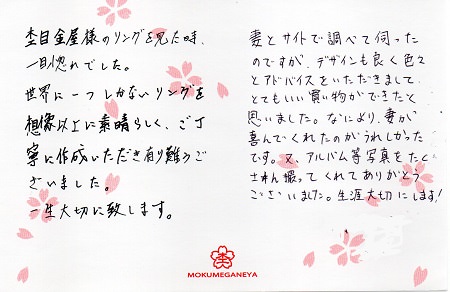 杢目金屋様のリングを見た時、
一目惚れでした。
世界に一つしかないリングを
想像以上に素晴らしく、ご丁
寧に作成いただき有り難うご
ざいました。
一生大切に致します。
妻とサイトで調べて伺った
のですが、デザインも良く色々
とアドバイスをいただきまして、
とてもいい買い物ができたと
思いました。なにより、妻が
喜んでくれたのがうれしかった
です。又、アルバム等写真をたく
さん撮ってくれてありがとう
ございました。生涯大切にします!
杢
MOKUMEGANEYA